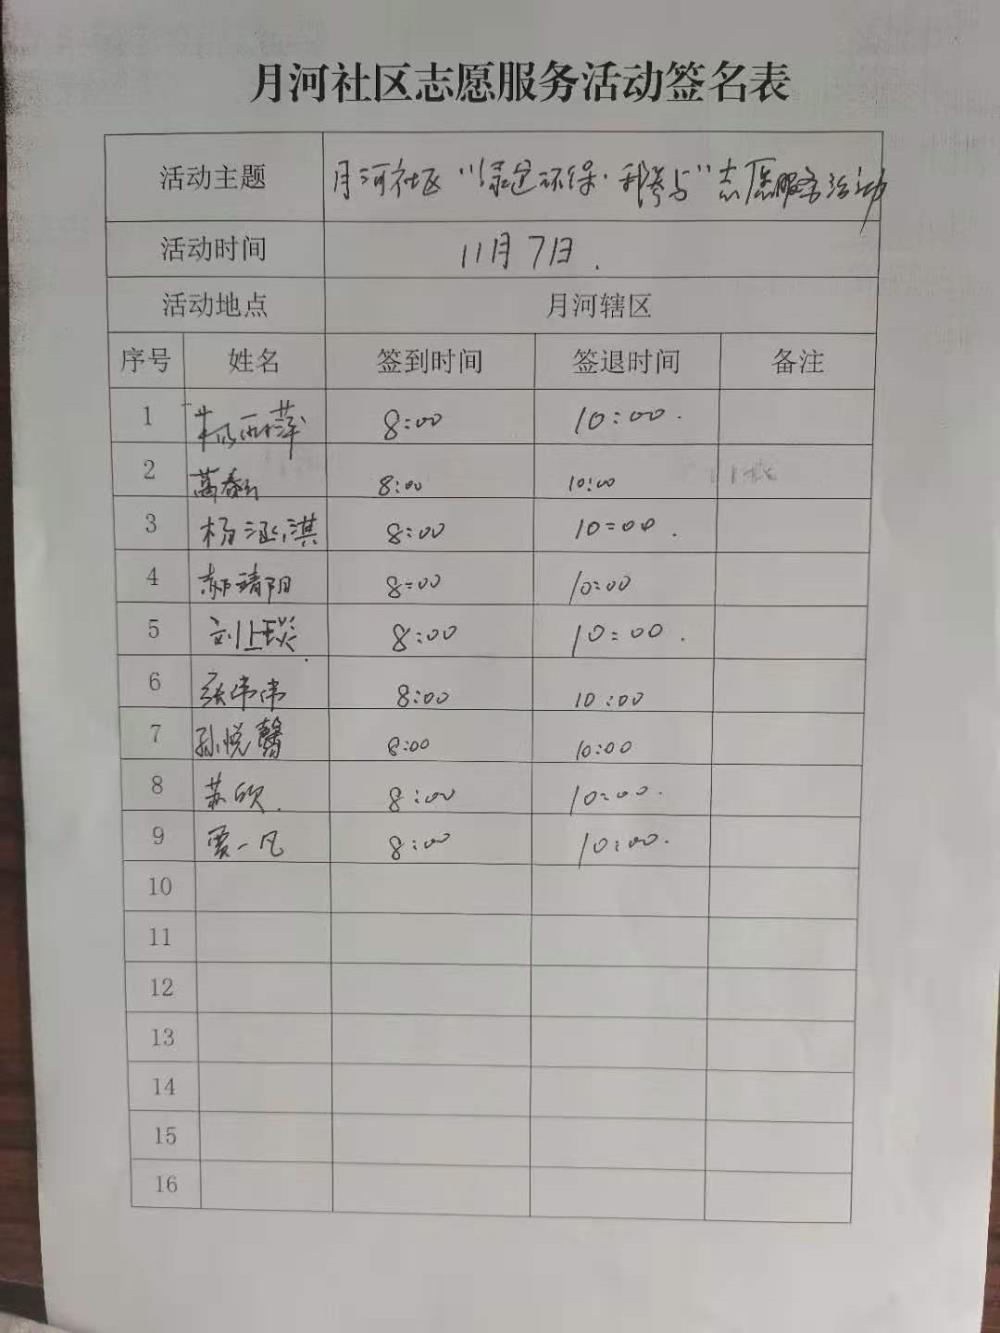 月河社区志愿服务活动签名表
活动主题 月河社区“绿色环保·我参与”志愿服务活动
活动时间 11月7日.
活动地点 月河辖区
序号 姓名 签到时间 签退时间 备注
1 8:00 10:00.
2 8:00 10:00
3 杨涵淇 8:00 10:00.
4 郝靖阳 8:00 10:00
5 8:00 10:00.
6 张伟伟 8:00 10:00
7 孙悦馨 8:00 10:00
8 苏欣. 8:00 10:00.
9 贾一凡 8:00 10:00.
10
11
12
13
14
15
16